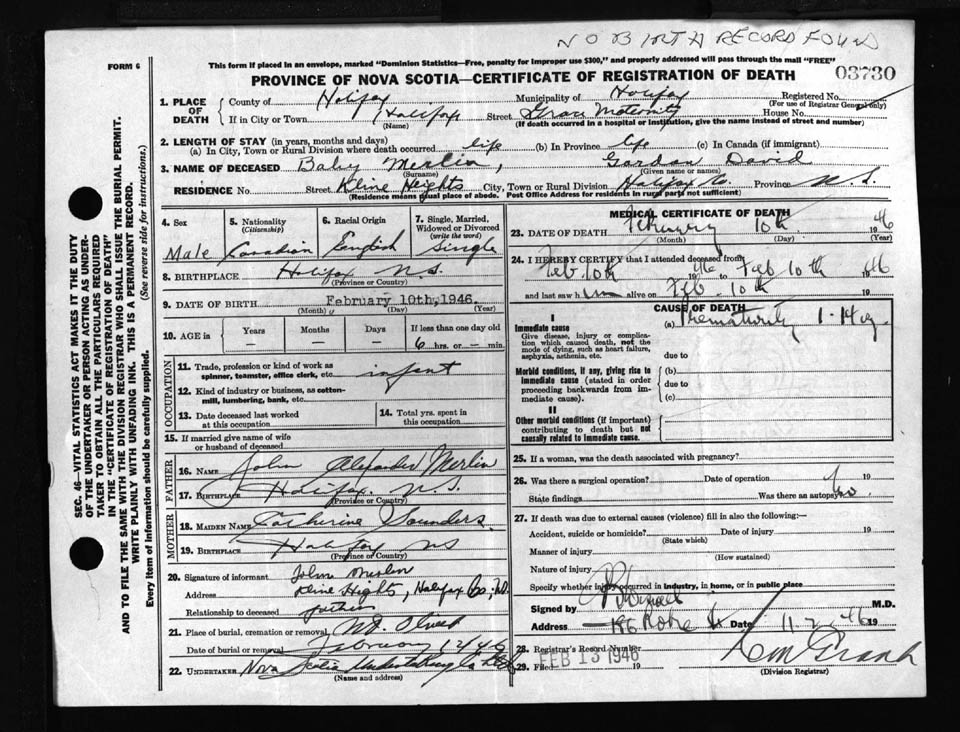 NO BIRTH RECORD FOUND
FORM 6
This form if placed in an envelope, marked "Dominion Statistics—Free, penalty for improper use $300," and properly addressed will pass through the mail "FREE"
PROVINCE OF NOVA SCOTIA—CERTIFICATE OF REGISTRATION OF DEATH
03730
SEC. 46—VITAL STATISTICS ACT MAKES IT THE DUTY
OF THE UNDERTAKER OR PERSON ACTING AS UNDER-
TAKER TO OBTAIN ALL THE PARTICULARS REQUIRED
IN THE "CERTIFICATE OF REGISTRATION OF DEATH"
AND TO FILE THE SAME WITH THE DIVISION REGISTRAR WHO SHALL ISSUE THE BURIAL PERMIT.
WRITE PLAINLY WITH UNFADING INK. THIS IS A PERMANENT RECORD.
Every item of information should be carefully supplied. (See reverse side for instructions.)
1. PLACE OF DEATH County of Halifax Municipality of Halifax Registered No.
(For use of Registrar General only)
If in City or Town Halifax Street Grace Maternity House No.
(Name) (If death occurred in a hospital or institution, give the name instead of street and number)
2. LENGTH OF STAY (in years, months and days)
(a) In City, Town or Rural Division where death occurred life (b) In Province life (c) In Canada (if immigrant)
3. NAME OF DECEASED Baby Merlin, Gordon David
(Surname) (Given name or names)
RESIDENCE No. Street Kline Heights City, Town or Rural Division Halifax Co. Province N.S.
(Residence means usual place of abode. Post Office Address for residents in rural parts not sufficient)
4. Sex Male
5. Nationality (Citizenship) Canadian
6. Racial Origin English
7. Single, Married, Widowed or Divorced (write the word) Single
8. BIRTHPLACE Halifax NS
(Province or Country)
9. DATE OF BIRTH February 10th, 1946.
(Month) (Day) (Year)
10. AGE in Years — Months — Days — If less than one day old 6 hrs. or — min.
OCCUPATION
11. Trade, profession or kind of work as spinner, teamster, office clerk, etc. infant
12. Kind of industry or business, as cotton-mill, lumbering, bank, etc.
13. Date deceased last worked at this occupation
14. Total yrs. spent in this occupation
15. If married give name of wife or husband of deceased
FATHER
16. NAME John Alexander Merlin
17. BIRTHPLACE Halifax. N.S.
(Province or Country)
MOTHER
18. MAIDEN NAME Catherine Saunders.
19. BIRTHPLACE Halifax NS
(Province or Country)
20. Signature of informant John Merlin
Address Kline Hights, Halifax Co. N.S.
Relationship to deceased father
21. Place of burial, cremation or removal Mt. Olivet
Date of burial or removal February 12 1946
22. UNDERTAKER Nova Scotia Undertaking Co Ltd
(Name and address)
MEDICAL CERTIFICATE OF DEATH
23. DATE OF DEATH February 10th 1946
(Month) (Day) (Year)
24. I HEREBY CERTIFY that I attended deceased from
Feb 10th 1946 Feb 10th 1946
and last saw him alive on Feb. 10th 19
CAUSE OF DEATH
I
Immediate cause (a) Prematurity
Give disease, injury or complication which caused death, not the mode of dying, such as heart failure, asphyxia, asthenia, etc. due to
Morbid conditions, if any, giving rise to immediate cause (stated in order proceeding backwards from immediate cause). (b)
due to
(c)
II
Other morbid conditions (if important) contributing to death but not causally related to immediate cause.
25. If a woman, was the death associated with pregnancy?
26. Was there a surgical operation? Date of operation 19
State findings Was there an autopsy? no.
27. If death was due to external causes (violence) fill in also the following:—
Accident, suicide or homicide? Date of injury 19
(State which)
Manner of injury
(How sustained)
Nature of injury
Specify whether injury occurred in industry, in home, or in public place
Signed by M.D.
Address Date 19
28. Registrar's Record Number
29. Filed FEB 13 1946 19
(Division Registrar)